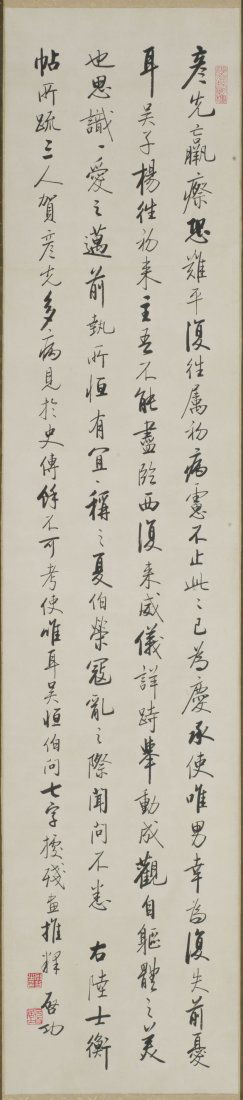 彦先羸瘵恐難平復往屬初病慮不止此〻已為慶承使唯男幸為復失前憂
耳吴子楊往初来主吾不能盡臨西復来威儀詳跱舉動成觀自軀體之美
也思識、愛之邁前執所恒有宜、稱之夏伯榮寇亂之際聞問不悉 右陸士衡
帖所疏三人賀彦先多病見於史傳餘不可考使唯耳吴恒伯問七字據殘畫推釋 啓功